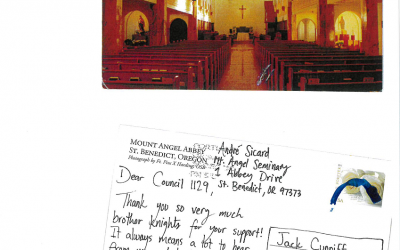 MOUNT ANGEL ABBEY
ST. BENEDICT, OREGON
Photograph by Fr. Pius X Harding, OSB
André Sicard
Mt. Angel Seminary
1 Abbey Drive
St. Benedict, OR 97373
Dear Council 1129,
Thank you so very much
brother Knights for your support!
It always means a lot to hear
Jack Cunniff